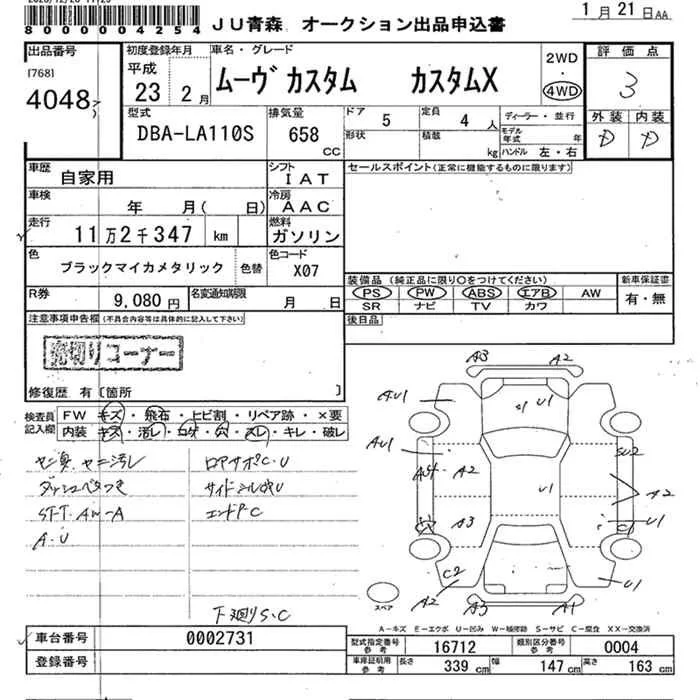 8000004254
JU青森 オークション出品申込書
1月21日AA
出品番号
[768]
4048
初度登録年月
平成
23 2月
車名・グレード
ムーヴカスタム カスタムX
2WD
・
4WD
評価点
3
外装 内装
D D
型式
DBA-LA110S
排気量
658
CC
ドア 5
定員 4 人
形状
積載 kg
ディーラー・並行
モデル年式 年
ハンドル 左・右
車歴
自家用
シフト
IAT
セールスポイント(正常に機能するものに限ります)
車検
年 月( 日)
冷房
AAC
走行
11万2千347 km
燃料
ガソリン
色
ブラックマイカメタリック
色替
色コード
X07
装備品(純正品に限り○をつけてください)
PS PW ABS エアB AW
SR ナビ TV カワ
新車保証書
有・無
R券
9,080円
名変通知期限
月 日
後日品
注意事項申告欄(不具合内容等は具体的に記入して下さい)
売切りコーナー
修復歴 有〔箇所 〕
検査員記入欄
FW キズ・飛石・ヒビ割・リペア跡・×要
内装 キズ・汚レ・コゲ・穴・スレ・キレ・破レ
ダッシュベタつき
A.U
ロアサポC.U
下廻りS.C
A3 A2
AU1
U1
AU1
A2
U1
A2
A3
U1
C2
A2
U1
A3 A1
スペア
A-キズ E-エクボ U-凹み W-補修跡 S-サビ C-腐食 XX-交換済
車台番号
0002731
登録番号
型式指定番号参考
16712
類別区分番号参考
0004
車庫証明用参考
長さ 339 cm
幅 147 cm
高さ 163 cm